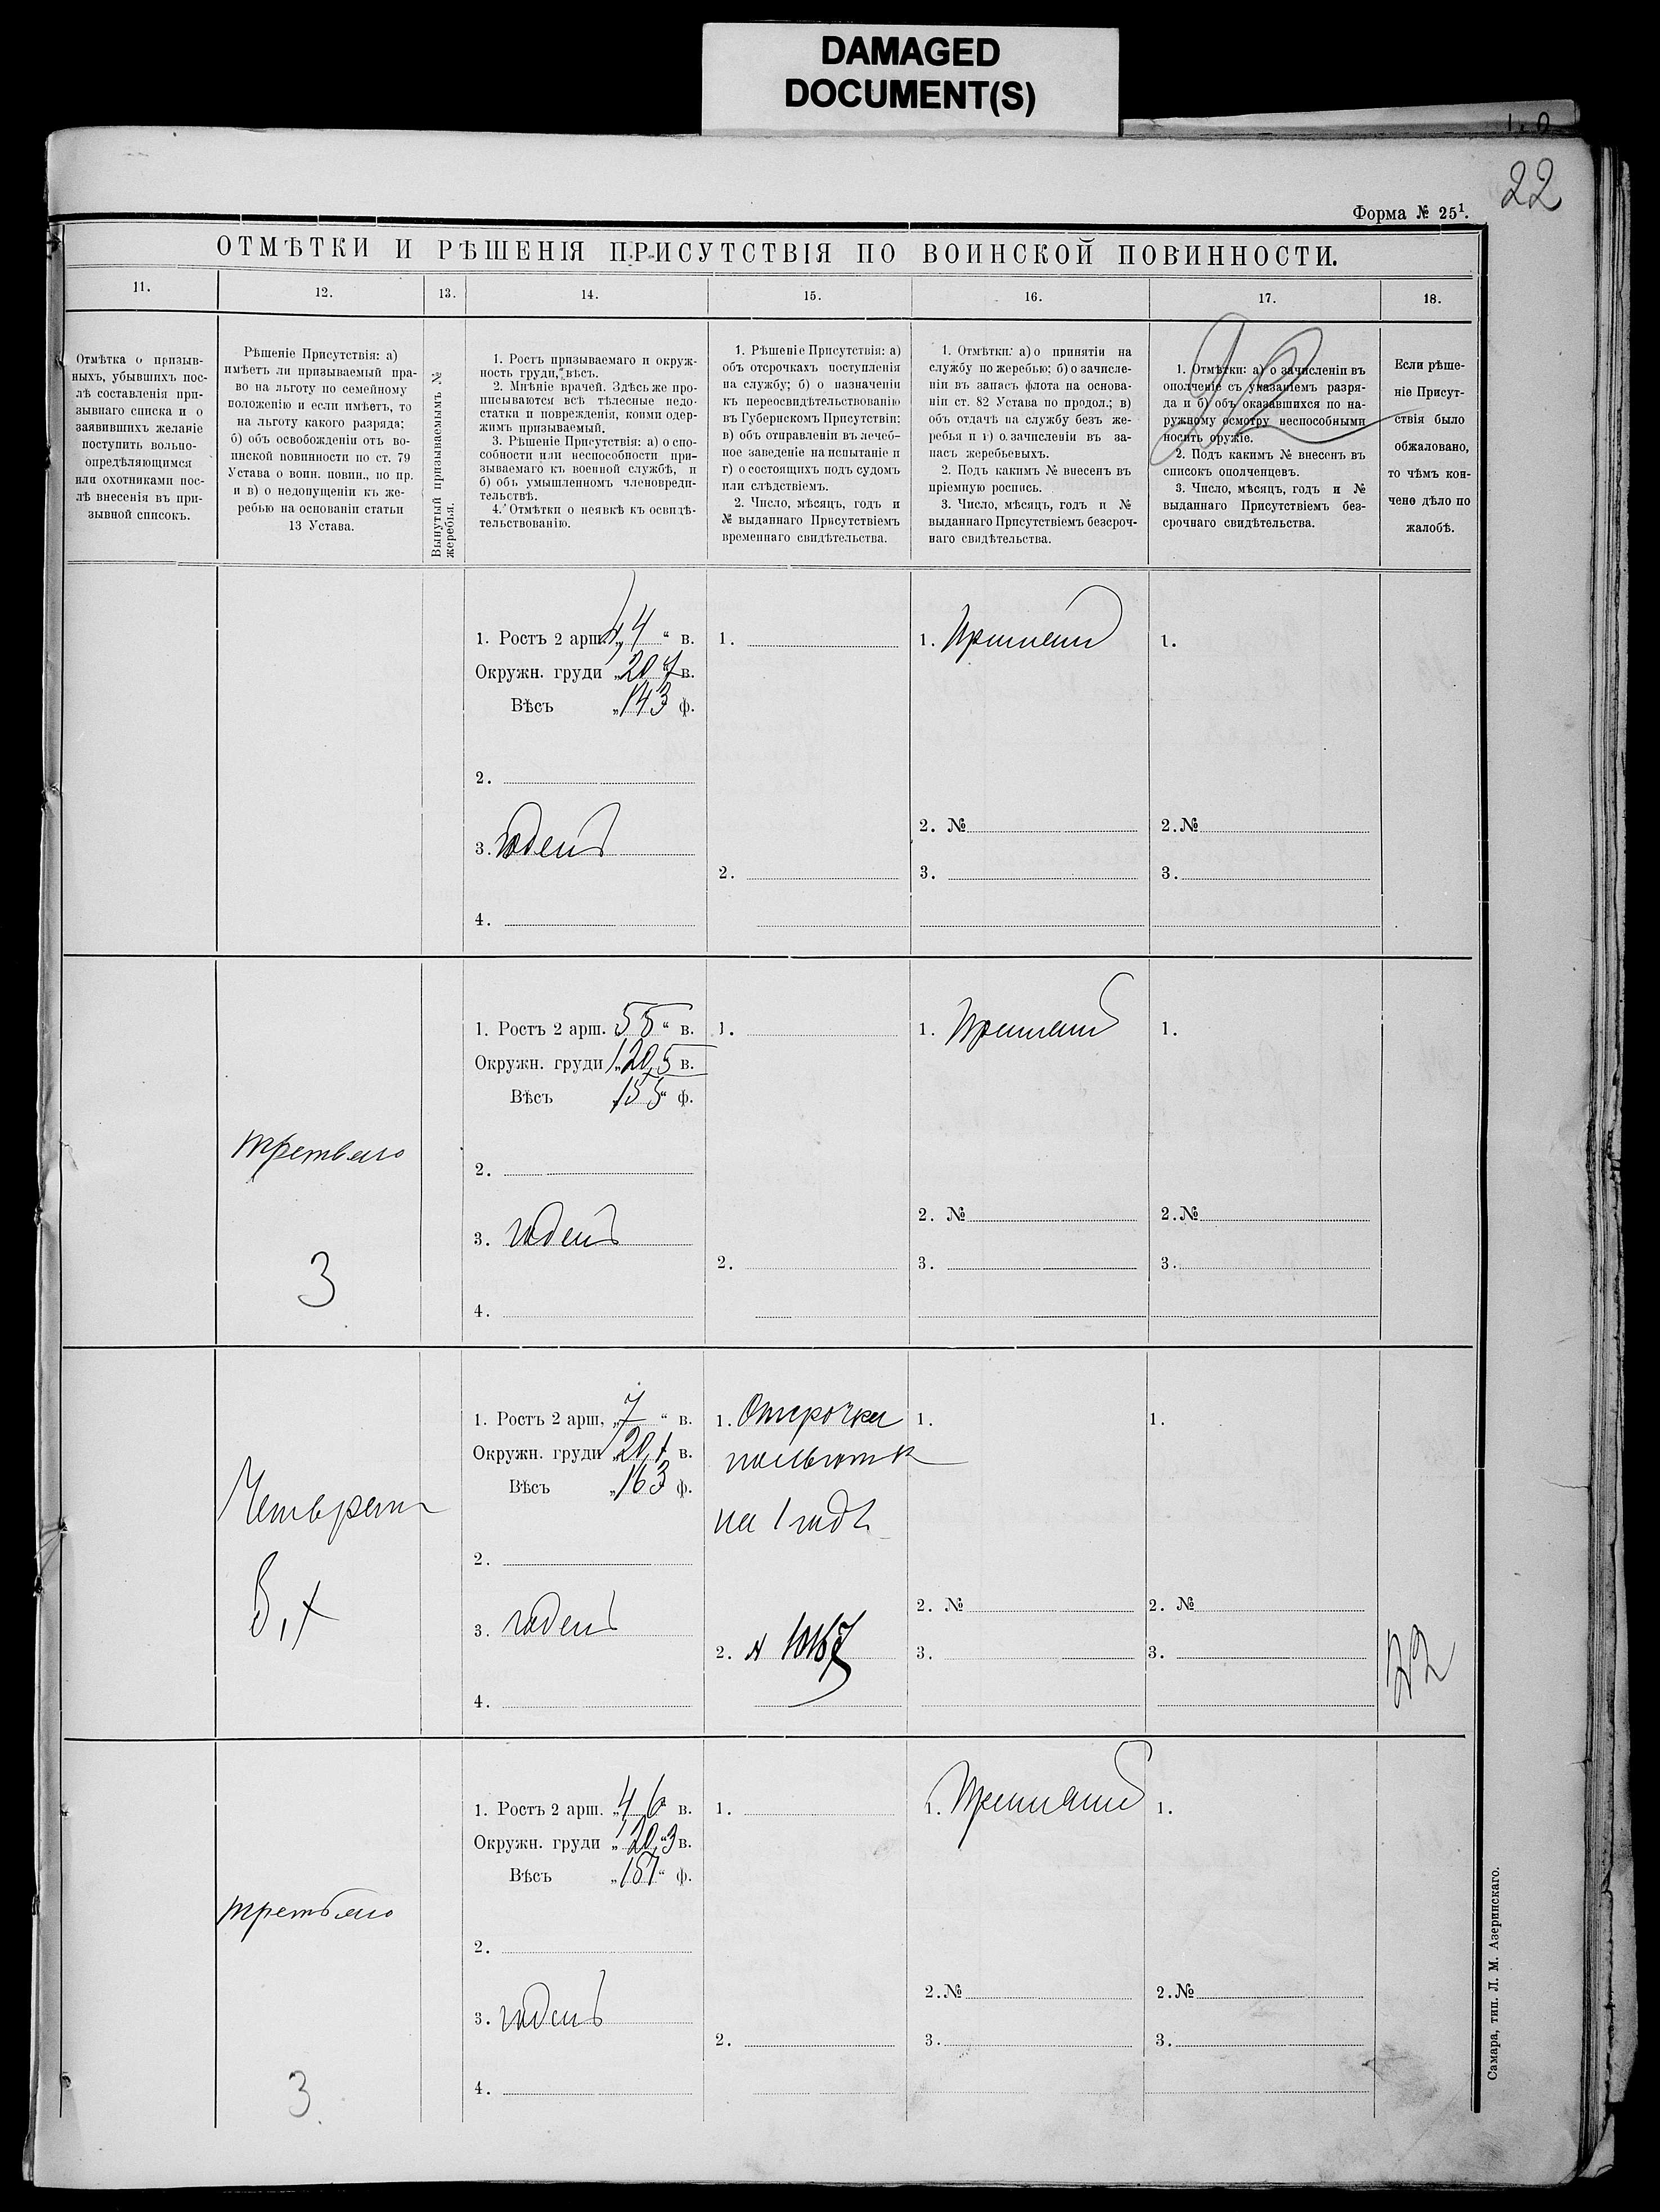 DAMAGED
DOCUMENT(S)
22
Форма № 25¹.
ОТМѢТКИ И РѢШЕНІЯ ПРИСУТСТВІЯ ПО ВОИНСКОЙ ПОВИННОСТИ.
11.
12.
13.
14.
15.
16.
17.
18.
Отмѣтка о призыв-
ныхъ, убывшихъ пос-
лѣ составленія при-
зывнаго списка и о
заявившихъ желаніе
поступить вольно-
опредѣляющимся
или охотниками пос-
лѣ внесенія въ при-
зывной списокъ.
Рѣшеніе Присутствія: а)
имѣетъ ли призываемый пра-
во на льготу по семейному
положенію и если имѣетъ, то
на льготу какого разряда;
б) объ освобожденіи отъ во-
инской повинности по ст. 79
Устава о воин. повин., по пр.
и в) о недопущеніи къ же-
ребью на основаніи статьи
13 Устава.
Вынутый призываемымъ №
жеребья.
1. Ростъ призываемаго и окруж-
ность груди, вѣсъ.
2. Мнѣніе врачей. Здѣсь же про-
писываются всѣ тѣлесные недо-
статки и поврежденія, коими одер-
жимъ призываемый.
3. Рѣшеніе Присутствія: а) о спо-
собности или неспособности при-
зываемаго къ военной службѣ, и
б) объ умышленномъ членовреди-
тельствѣ.
4. Отмѣтки о неявкѣ къ освидѣ-
тельствованію.
1. Рѣшеніе Присутствія: а)
объ отсрочкахъ поступленія
на службу; б) о назначеніи
къ переосвидѣтельствованію
въ Губернскомъ Присутствіи:
в) объ отправленіи въ лечеб-
ное заведеніе на испытаніе и
г) о состоящихъ подъ судомъ
или слѣдствіемъ.
2. Число, мѣсяцъ, годъ и
№ выданнаго Присутствіемъ
временнаго свидѣтельства.
1. Отмѣтки: а) о принятіи на
службу по жеребью; б) о зачисле-
ніи въ запасъ флота на основа-
ніи ст. 82 Устава по продол.; в)
объ отдачѣ на службу безъ же-
ребья и г) о зачисленіи въ за-
пасъ жеребьевыхъ.
2. Подъ какимъ № внесенъ въ
пріемную роспись.
3. Число, мѣсяцъ, годъ и №
выданнаго Присутствіемъ безсроч-
наго свидѣтельства.
1. Отмѣтки: а) о зачисленіи въ
ополченіе съ указаніемъ разря-
да и б) объ оказавшихся по на-
ружному осмотру неспособными
носить оружіе.
2. Подъ какимъ № внесенъ въ
списокъ ополченцевъ.
3. Число, мѣсяцъ, годъ и №
выданнаго Присутствіемъ без-
срочнаго свидѣтельства.
Если рѣше-
ніе Присут-
ствія было
обжаловано,
то чѣмъ кон-
чено дѣло по
жалобѣ.
22
1. Ростъ 2 арш. 4 в.
Окружн. груди 20 7 в.
Вѣсъ 143 ф.
2.
3. годенъ
4.
1.
2.
1. Принятъ
2. №
3.
1.
2. №
3.
третьяго
3
1. Ростъ 2 арш. 5 5 в.
Окружн. груди 20,5 в.
Вѣсъ 155 ф.
2.
3. годенъ
4.
1.
2.
1. Принятъ
2. №
3.
1.
2. №
3.
1. Ростъ 2 арш. 7 в.
Окружн. груди 20,1 в.
Вѣсъ 163 ф.
2.
3. годенъ
4.
1. Отсрочка
на 1 годъ
2. №
1.
2. №
3.
1.
2. №
3.
22
третьяго
3
1. Ростъ 2 арш. 4 6 в.
Окружн. груди 20,3 в.
Вѣсъ 157 ф.
2.
3. годенъ
4.
1.
2.
1. Принятъ
2. №
3.
1.
2. №
3.
Самара, тип. Л. М. Азеринскаго.